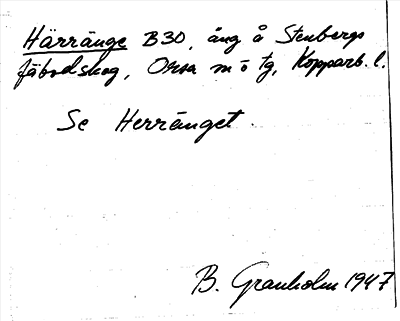 Härränge B30, äng å Stenbergs
fäbodskog, Orsa m o tg, Kopparb. l.
Se Herränget.
B. Granholm 1947